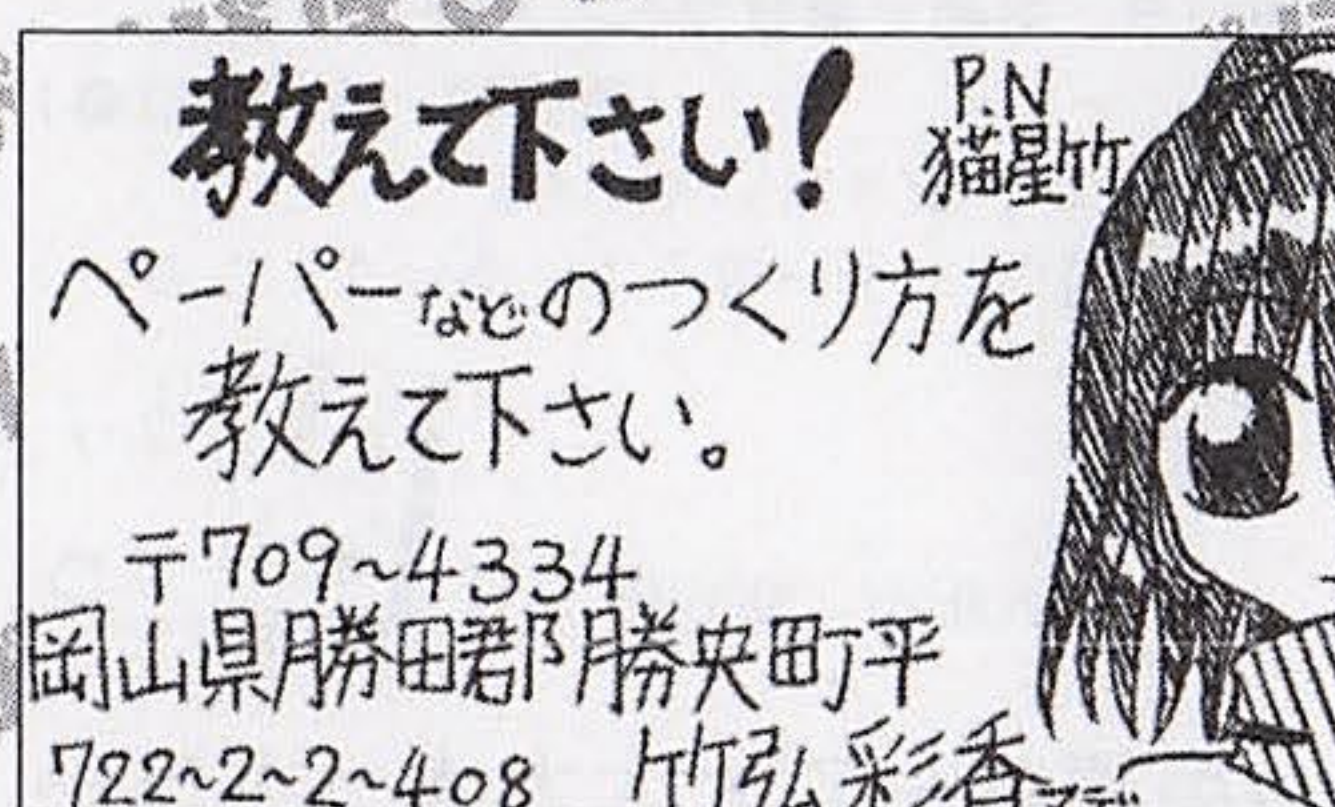 教えて下さい!
P.N
猫星竹
ペーパーなどのつくり方を
教えて下さい。
〒709~4334
岡山県勝田郡勝央町平
722~2~2~408 竹弘彩香まで